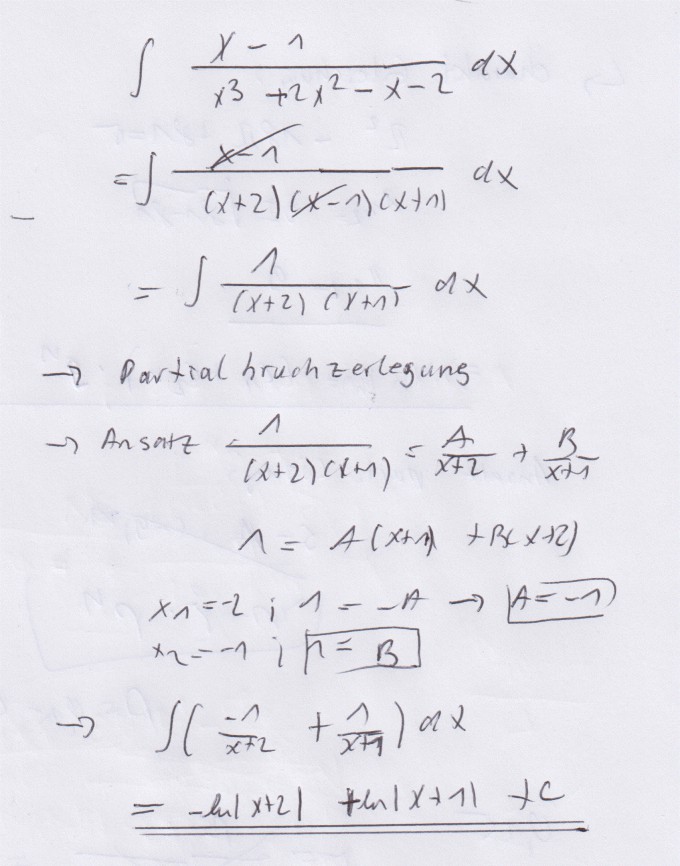 ∫ (x - 1)/(x³ + 2x² - x - 2) dx
= ∫ (x - 1)/((x+2)(x-1)(x+1)) dx
= ∫ 1/((x+2)(x+1)) dx
→ Partialbruchzerlegung
→ Ansatz 1/((x+2)(x+1)) = A/(x+2) + B/(x+1)
1 = A(x+1) + B(x+2)
x1 = -2 ; 1 = -A → A = -1
x2 = -1 ; 1 = B
→ ∫(-1/(x+2) + 1/(x+1)) dx
= -ln|x+2| + ln|x+1| + C